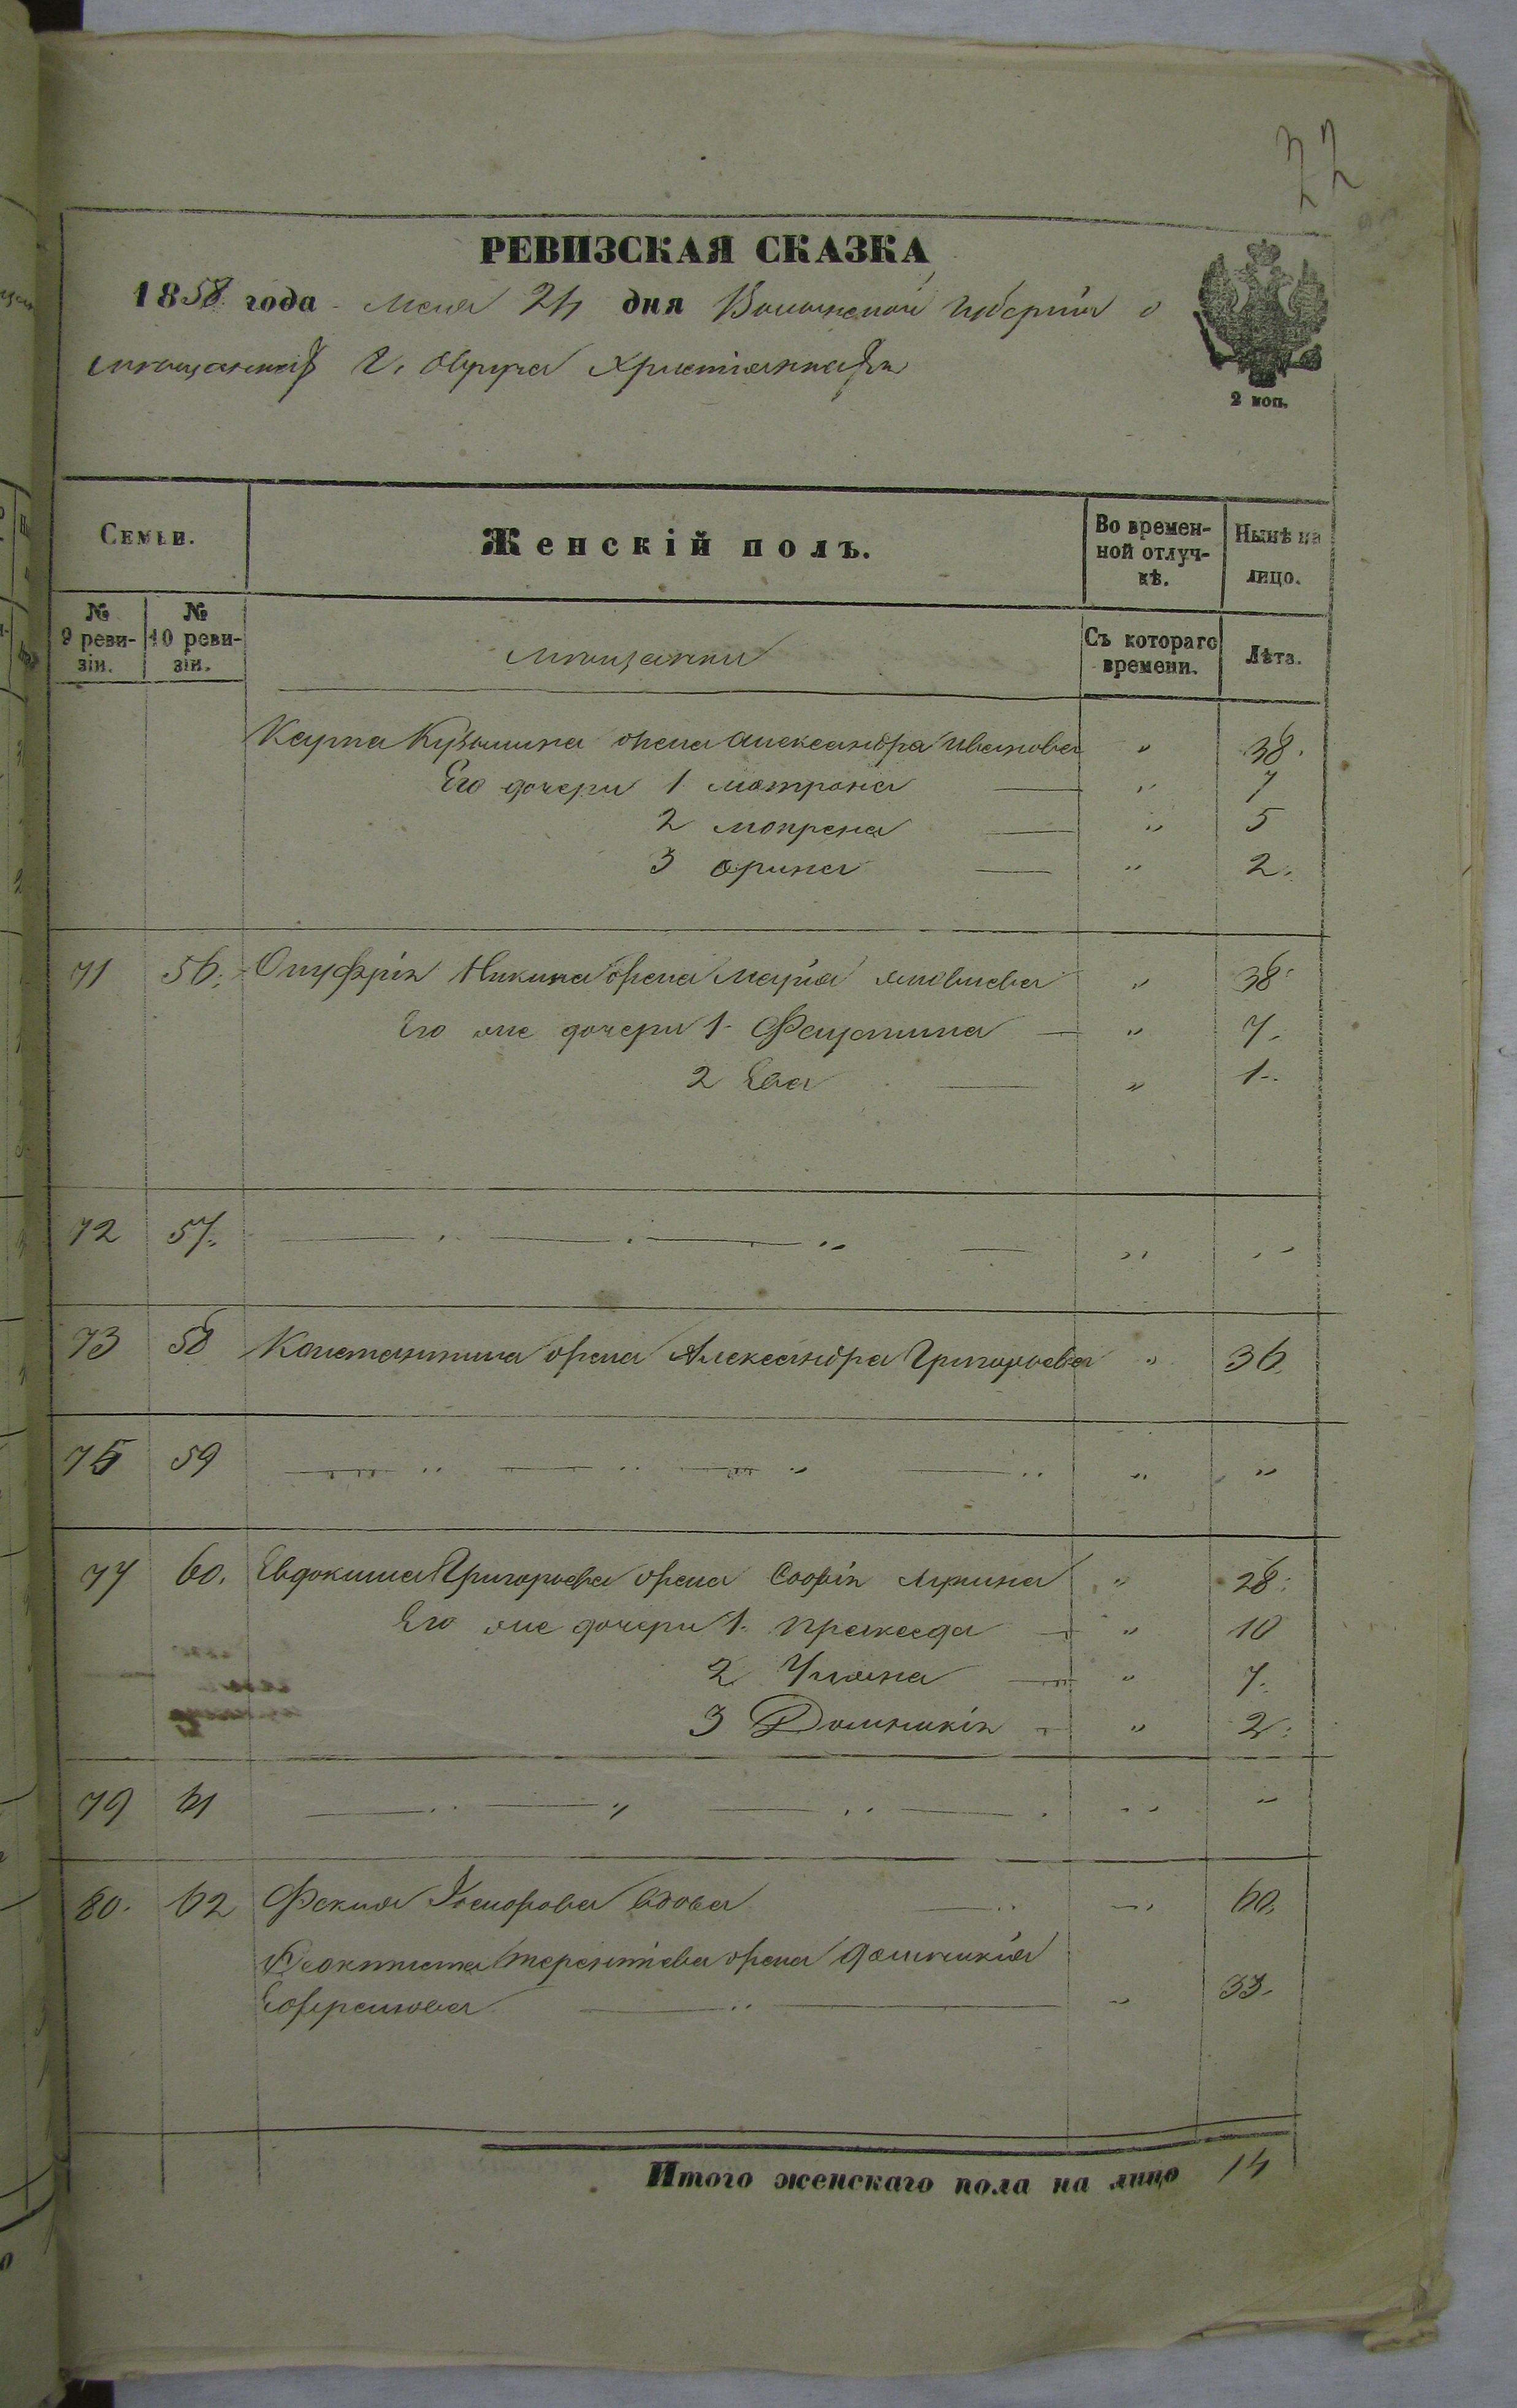 22
РЕВИЗСКАЯ СКАЗКА
1858 года Мая 24 дня Волынской губернiи о
мѣщанкахъ г. Овруча христiанкахъ
2 коп.
Семьи.
Женскiй полъ.
Во времен-
ной отлуч-
кѣ.
Нынѣ на
лицо.
№
9 реви-
зiи.
№
10 реви-
зiи.
мѣщанки
Съ котораго
времени.
Лѣта.
Карпа Кузьмина жена Александра Иванова " 38.
Его дочери 1 Матрона " 7
2 Мокрена " 5
3 Орина " 2.
71 56. Онуфрiя Никина жена Марiя Яковлева " 38
Его же дочери 1. Фаустина " 7.
2 Ева " 1.
72 57. " " "
73 58 Константина жена Александра Григорьева " 36
75 59 " " "
77 60. Евдокима Григорьева жена Софiя Лукина " 28.
Его же дочери 1. Прекседа " 10
2. Ульяна " 7.
3 Домникiя " 2.
79 61 " " "
80. 62 Фекла Вдова " 60.
Феоктиста Терентiева жена Домникiя
Ефремова " 33.
Итого женскаго пола на лицо 14